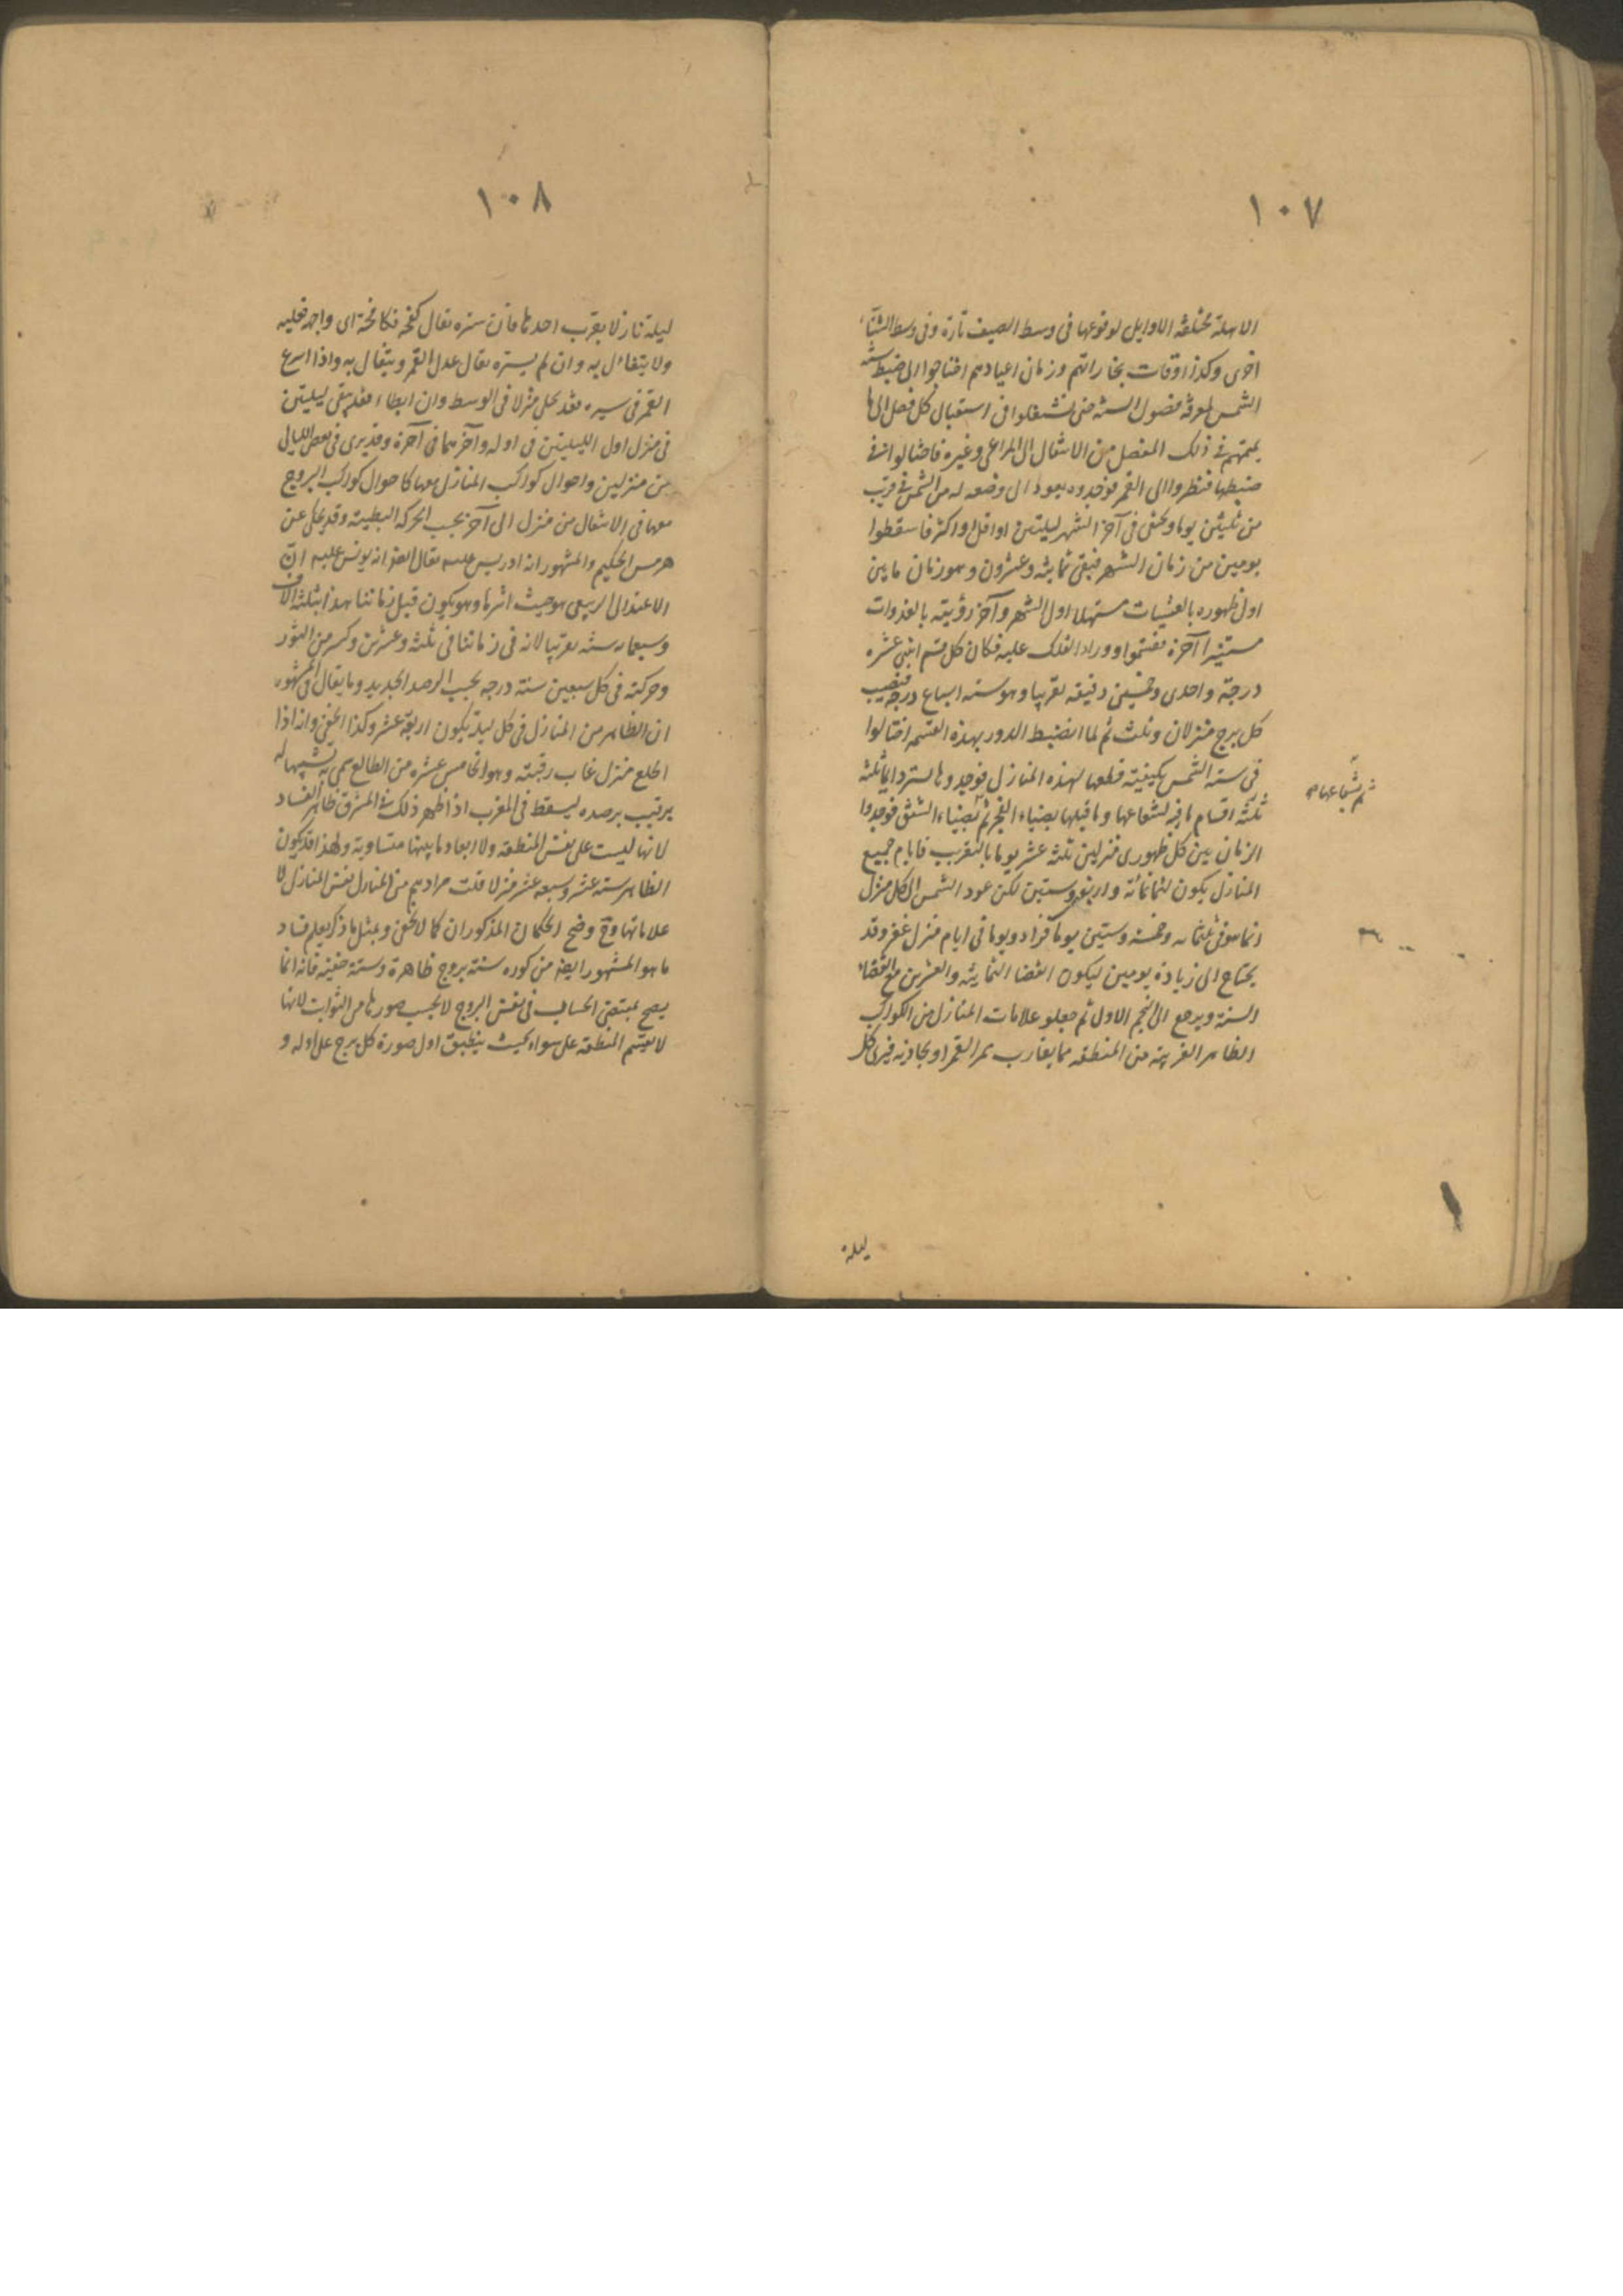 ١٠٧
الاهلة مختلفة الاوايل لوقوعها فى وسط الصيف تارة وفى وسط الشتاء
اخرى وكذا اوقات تجاراتهم وزمان اعيادهم احتاجوا الى ضبط سنة
الشمس لمعرفة فصول السنة حتى يشتغلوا فى استقبال كل فصل الى ما
يهمهم فى ذلك الفصل من الانتقال الى المراعى وغيره فاحتالوا فى
ضبطها فنظروا الى القمر فوجدوه يعود الى وضعه له من الشمس فى قريب
من ثلثين يوما ويختفى فى آخر الشهر ليلتين او اقل او اكثر فاسقطوا
يومين من زمان الشهر فبقى ثمانية وعشرون وهو زمان ما بين
اول ظهوره بالعشيات مستهلا اول الشهر وآخر رؤيته بالغدوات
مستنيرا آخره فقسموا دور الفلك عليه فكان كل قسم اثنى عشره
درجة واحدى وخمسين دقيقه تقريبا وهو ستة اسباع درجة فنصيب
كل برج منزلان وثلث ثم لما انضبط الدور بهذه القسمة احتالوا
فى سنة الشمس بكيفية قطعها لهذه المنازل فوجدوها تستر دايما ثلثة
ثم شعاعها
ثلثة اقسام ما فيه لشعاعها وما قبلها بضياء الفجر ثم بضياء الشفق فوجدوا
الزمان بين كل ظهورى منزلين ثلثة عشر يوما بالتقريب فايام جميع
المنازل يكون ثلثمائة واربعة وستين لكن عود الشمس الى كل منزل
انما هو فى ثلثمائه وخمسة وستين يوما فزادوا يوما فى ايام منزل غفر وقد
يحتاج الى زيادة يومين ليكون انقضا الثمانية والعشرين مع انقضاء
السنة ويرجع الى النجم الاول ثم جعلو علامات المنازل من الكواكب
الظاهر القريبة من المنطقه مما يقارب ممر القمر او يحاذيه فيرى كل
ليلة
١٠٨
ليلة نازلا بقرب احدها فان ستره يقال كفحه فكافحة اى واجهه فغلبه
ولا يتفائل به وان لم يستره يقال عدل القمر ويتفال به واذا اسرع
القمر فى سيره فقد يخلى منزلا فى الوسط وان ابطاء فقد يبقى ليلتين
فى منزل اول الليلتين فى اوله وآخرهما فى آخره وقد يرى فى بعض الليالى
بين منزلين واحوال كواكب المنازل معها كاحوال كواكب البروج
معها فى الانتقال من منزل الى آخر بحسب الحركة البطيئة وقد يحكى عن
هرمس الحكيم والمشهور انه ادريس عليه يقال ايضا انه يونس عليه ان
الاعتدال الربيعى هو حيث الثريا وهو يكون قبل زماننا هذا بثلثة الاف
وسبعمائه سنة تقريبا لانه فى زماننا فى ثلثة وعشرين وكسر من الثور
وحركته فى كل سبعين سنة درجه بحسب الرصد الجديد وما يقال فى المشهور
ان الظاهر من المنازل فى كل ليلة يكون اربعة عشر وكذا الخفى وانه اذا
اطلع منزل غاب رقيبه وهو الخامس عشره من الطالع سمى به تشبيها له
برقيب يرصده ليسقط فى المغرب اذا ظهر ذلك فى المشرق ظاهر الفساد
لانها ليست على نفس المنطقه ولا ابعاد ما بينها متساوية ولهذا قد يكون
الظاهر ستة عشر وسبعه عشر منزلا قلت مرادهم من المنازل نفس المنازل لا
علاماتها وح وضح الحكمان المذكوران كما لا يخفى وبمثل ما ذكر يعلم فساد
ما هو المشهور ايضا من كون ستة بروج ظاهرة وستة خفية فانه انما
يصح بمقتضى الحساب فى نفس البروج لا بحسب صورها من الثوابت لانها
لا تقسم المنطقة على سواء بحيث ينطبق اول صورة كل برج على اوله و